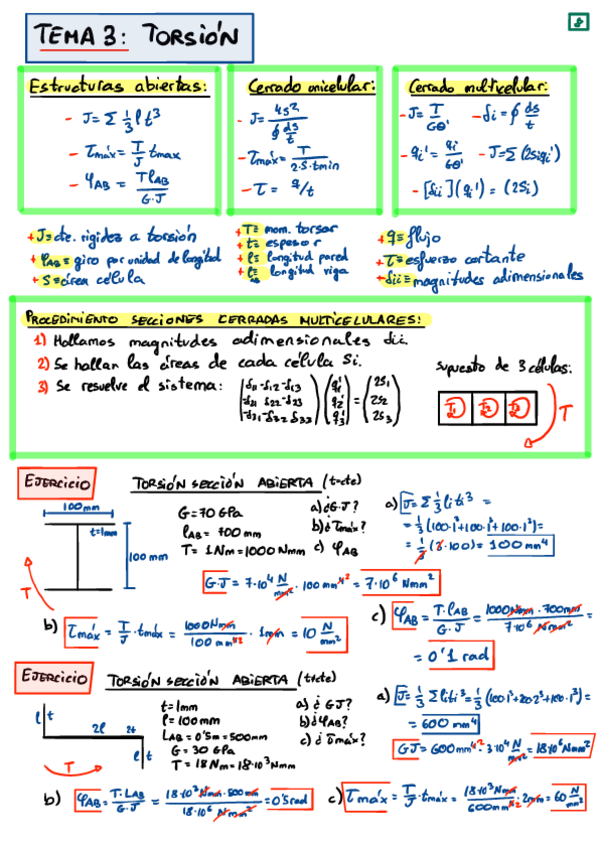 TEMA 3: TORSIÓN
8
Estructuras abiertas:
- J = Σ 1/3 l t³
- τmáx = T/J tmax
- φAB = T lAB / G·J
Cerrado unicelular:
- J = 4S² / ∮ ds/t
- τmáx = T / 2·S·tmin
- τ = q/t
Cerrado multicelular:
- J = T/Gθ' - δi = ∮ ds/t
- qi' = qi/Gθ' - J = Σ(2Siqi')
- [δii](q') = (2Si)
+ J = cte. rigidez a torsión
+ φAB = giro por unidad de longitud
+ S = área célula
+ T = mom. torsor
+ t = espesor
+ l = longitud pared
+ lAB = longitud viga
+ q = flujo
+ τ = esfuerzo cortante
+ δii = magnitudes adimensionales
PROCEDIMIENTO SECCIONES CERRADAS MULTICELULARES:
1) Hallamos magnitudes adimensionales δii.
2) Se hallan las áreas de cada célula Si.
3) Se resuelve el sistema:
(δ11 -δ12 -δ13) (q'1) = (2S1)
(-δ21 δ22 -δ23) (q'2) = (2S2)
(-δ31 -δ32 δ33) (q'3) = (2S3)
supuesto de 3 células:
T
EJERCICIO
TORSIÓN SECCIÓN ABIERTA (t=cte)
100mm
t=1mm
100 mm
T
G = 70 GPa
lAB = 700 mm
T = 1 Nm = 1000 Nmm
a) ¿G·J?
b) ¿τmáx?
c) φAB
a) J = Σ 1/3 li ti³ =
= 1/3 (100·1³+100·1³+100·1³) =
= 1/3 (3·100) = 100 mm⁴
G·J = 7·10⁴ N/mm² · 100 mm⁴ = 7·10⁶ Nmm²
b) τmáx = T/J · tmáx = 1000Nmm / 100mm⁴ · 1mm = 10 N/mm²
c) φAB = T·lAB / G·J = 1000Nmm · 700mm / 7·10⁶ Nmm² =
= 0'1 rad
EJERCICIO
TORSIÓN SECCIÓN ABIERTA (t≠cte)
l t
2l 2t
l t
T
t = 1mm
l = 100mm
LAB = 0'5m = 500mm
G = 30 GPa
T = 18Nm = 18·10³Nmm
a) ¿GJ?
b) ¿φAB?
c) ¿τmáx?
a) J = 1/3 Σ li ti³ = 1/3 (100·1³+200·2³+100·1³) =
= 600 mm⁴
GJ = 600mm⁴ · 3·10⁴ N/mm² = 18·10⁶ Nmm²
b) φAB = T·LAB / G·J = 18·10³Nmm·500mm / 18·10⁶ Nmm² = 0'5rad
c) τmáx = T/J · tmáx = 18·10³Nmm / 600mm⁴ · 2mm = 60 N/mm²